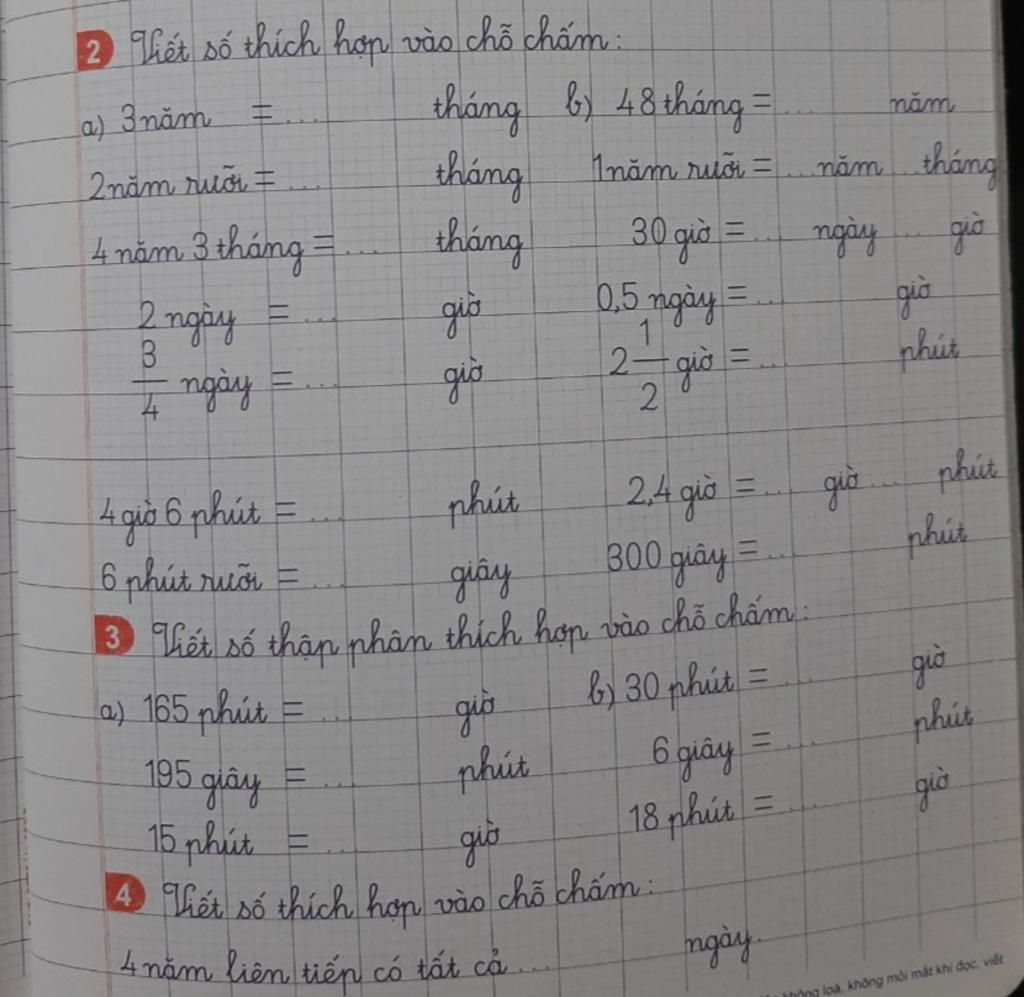 2 Viết số thích hợp vào chỗ chấm:
a) 3 năm = ... tháng b) 48 tháng = ... năm
2 năm rưỡi = ... tháng 1 năm rưỡi = ... năm ... tháng
4 năm 3 tháng = ... tháng 30 giờ = ... ngày ... giờ
2 ngày = ... giờ 0,5 ngày = ... giờ
3/4 ngày = ... giờ 2 1/2 giờ = ... phút
4 giờ 6 phút = ... phút 2,4 giờ = ... giờ ... phút
6 phút rưỡi = ... giây 300 giây = ... phút
3 Viết số thập phân thích hợp vào chỗ chấm:
a) 165 phút = ... giờ b) 30 phút = ... giờ
195 giây = ... phút 6 giây = ... phút
15 phút = ... giờ 18 phút = ... giờ
4 Viết số thích hợp vào chỗ chấm:
4 năm liên tiếp có tất cả ... ngày.
không loá, không mỏi mắt khi đọc, viết